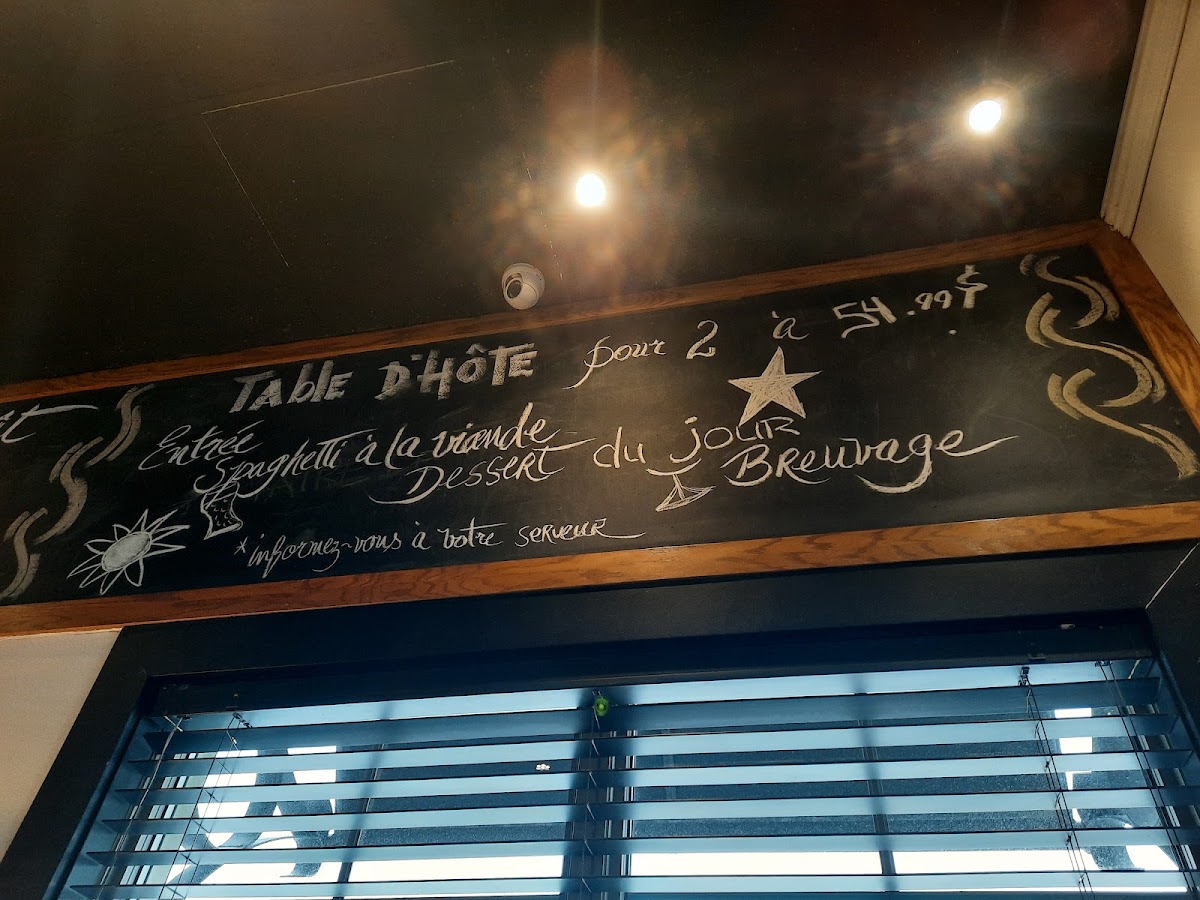 it
TABLE D'HÔTE pour 2 à 54.99$
Entrée
Spaghetti à la viande
Dessert du jour
Breuvage
*informez-vous à votre serveur